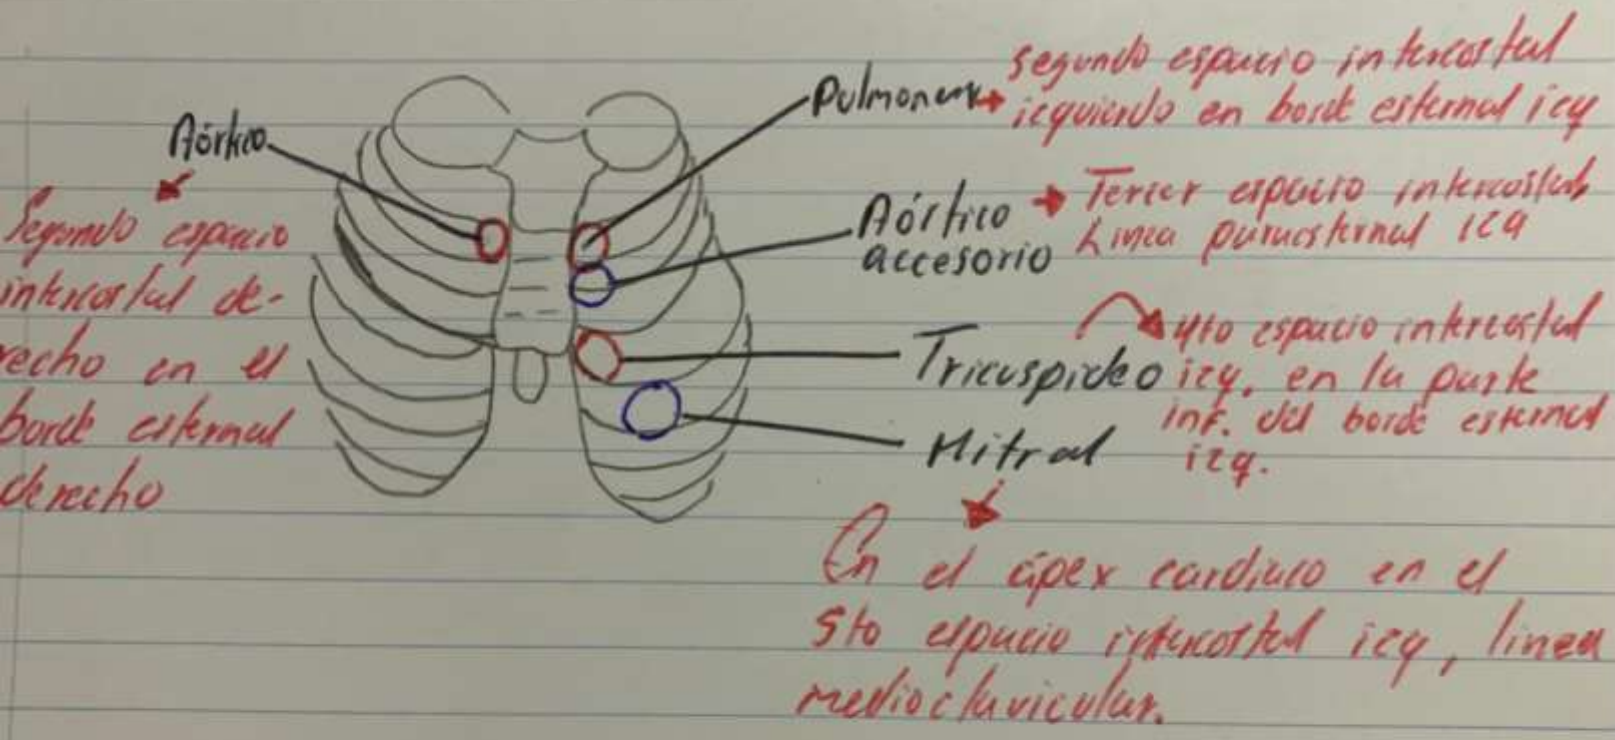 Aórtico
Segundo espacio
intercostal de-
recho en el
borde esternal
derecho
Pulmonar
segundo espacio intercostal
izquierdo en borde esternal izq
Aórtico
accesorio
Tercer espacio intercostal,
Línea paraesternal izq
Tricuspideo
4to espacio intercostal
izq. en la parte
inf. del borde esternal
izq.
Mitral
En el ápex cardiaco en el
5to espacio intercostal izq, linea
medioclavicular.